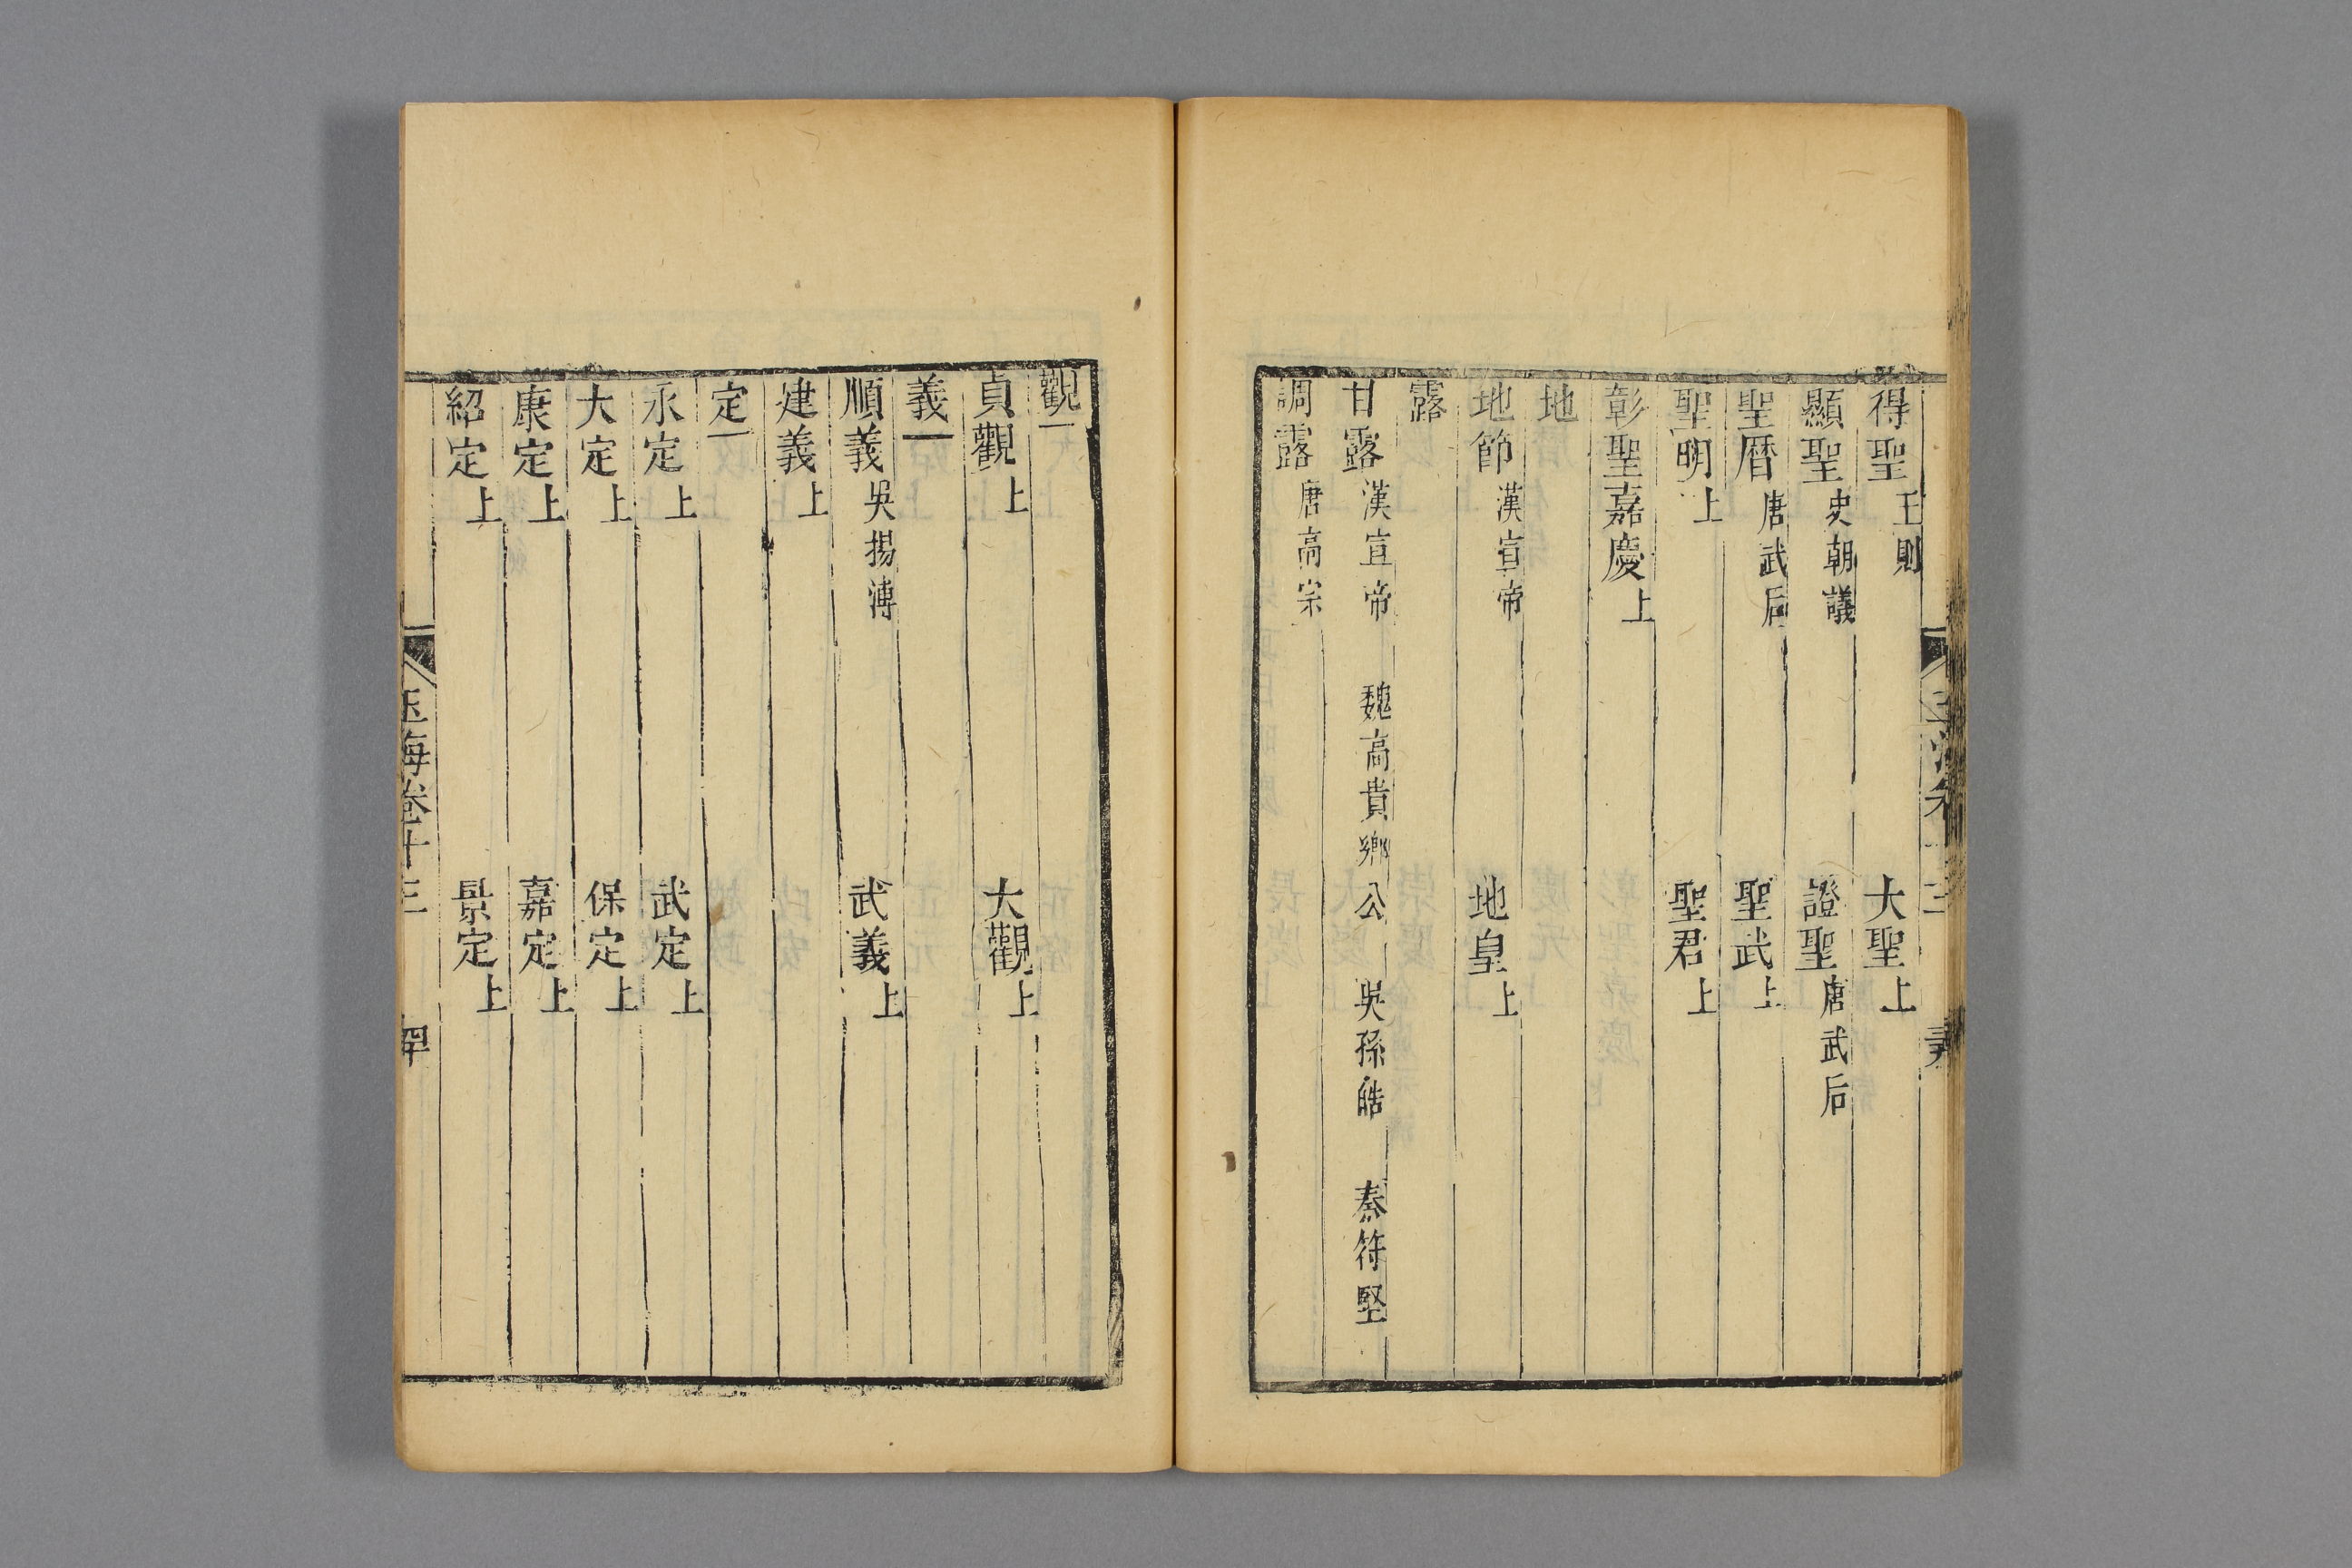 得聖王則 大聖上
顯聖史朝議 證聖唐武后
聖曆唐武后 聖武上
聖明上 聖君上
彰聖嘉慶上
地
地節漢宣帝 地皇上
露
甘露漢宣帝 魏高貴鄉公 吳孫皓 秦符堅
調露唐高宗
觀
貞觀上 大觀上
義
順義吳揚溥 武義上
建義上
定
永定上 武定上
大定上 保定上
康定上 嘉定上
紹定上 景定上
玉海卷十三